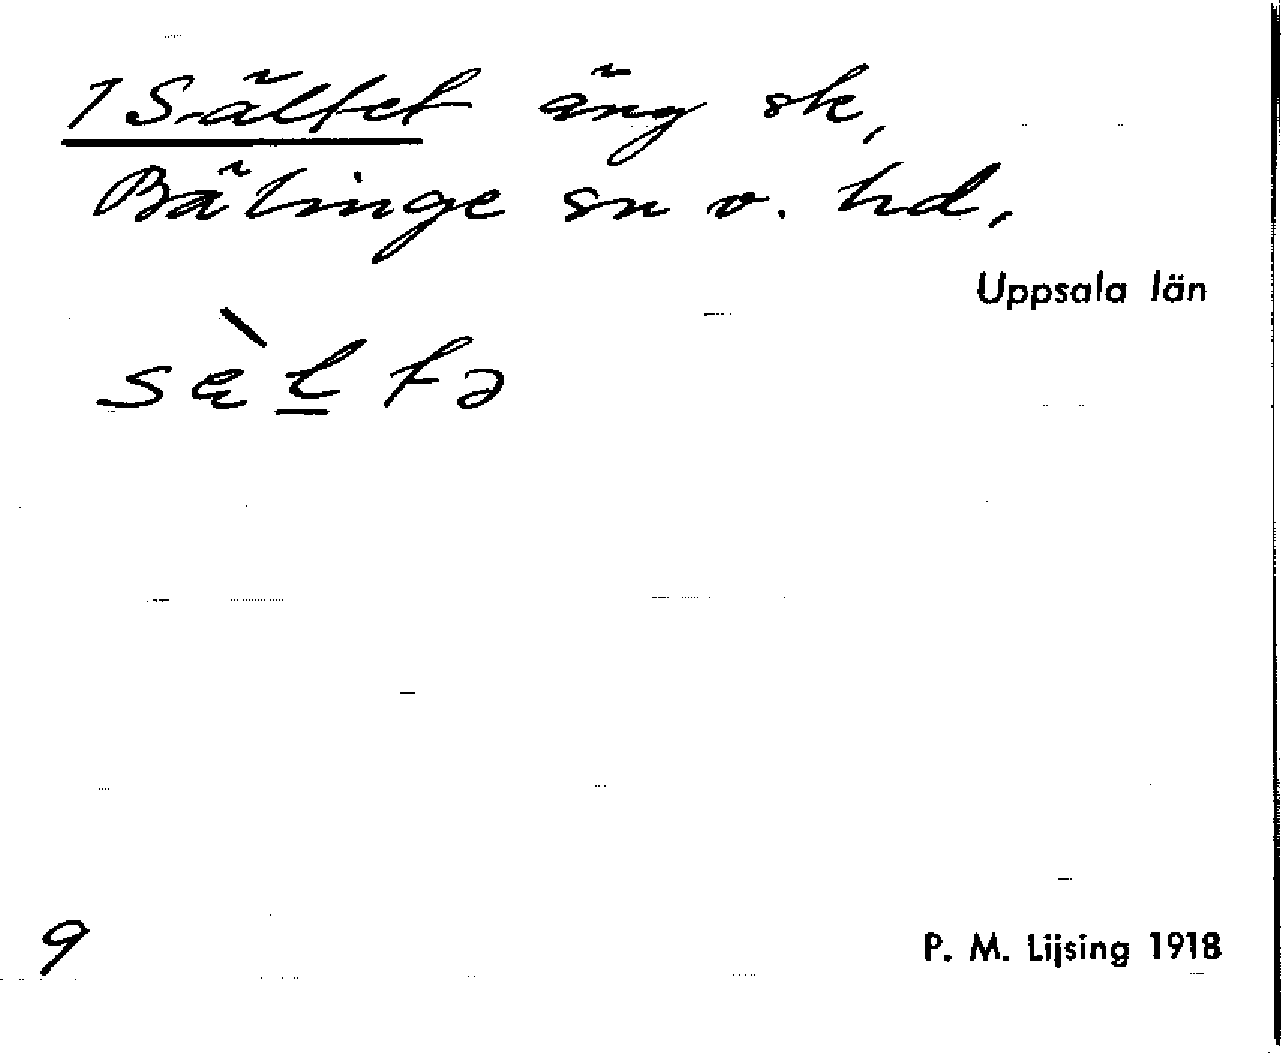 1 Sältet äng sk,
Bälinge sn o. hd,
Uppsala län
sæ̀l̲tə
9
P. M. Lijsing 1918